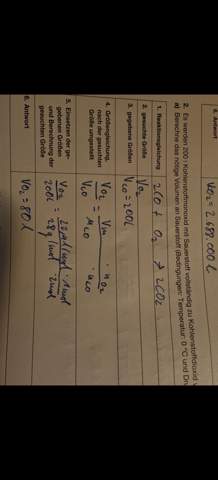 6. Antwort
V_O2 = 2.689.000 l
2. Es werden 200 l Kohlenstoffmonoxid mit Sauerstoff vollständig zu Kohlenstoffdioxid
a) Berechne das nötige Volumen an Sauerstoff (Bedingungen: Temperatur: 0 °C und
1. Reaktionsgleichung
2CO + O2 → 2CO2
2. gesuchte Größe
V_O2
3. gegebene Größen
V_CO = 200l
4. Größengleichung, nach der gesuchten Größe umgestellt
V_O2 / V_CO = V_m · n_O2 / M_CO · n_CO
5. Einsetzen der gegebenen Größen und Berechnung der gesuchten Größe
V_O2 / 200l = 22,4 l/mol · 1mol / 28 g/mol · 2mol
6. Antwort
V_O2 = 80l